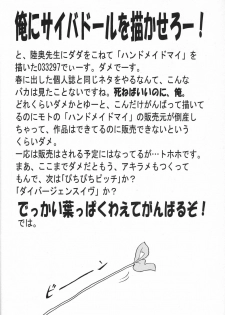 俺にサイバドールを描かせろー！
と、陸奥先生にダダをこねて「ハンドメイドマイ」を
描いた033297でぃーす。ダメでーす。
春に出した個人誌と同じネタをやるなんて、こんな
バカは見たことないですね。死ねばいいのに、俺。
どれくらいダメかとゆーと、こんだけがんばって描いて
るのにモトの「ハンドメイドマイ」の販売元が倒産し
ちゃって、作品はできてるのに販売できないという
くらいダメ。
一応は販売される予定にはなってるが…トホホです。
まあ、ここまでダメだともう、アキラメもつくって
もんで、次は「ぴちぴちピッチ」か？
「ダイバージェンスイヴ」か？
でっかい葉っぱくわえてがんばるぞ！
では。
ビーン